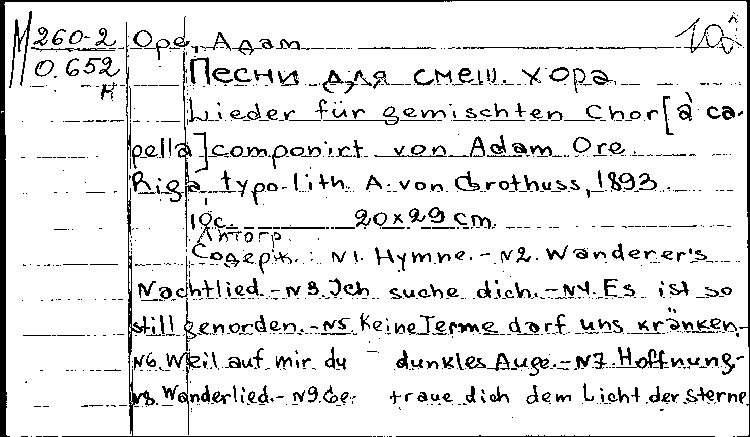 М 260-2 Оре, Адам 102
О.652 Песни для смеш. хора
н
Lieder für gemischten Chor [à ca-
pella] componirt von Adam Ore.
Riga, typo-lith. A. von Grothuss, 1893.
10с. 20x29 cm.
Литогр.
Содерж.: N1. Hymne.-N2. Wanderer's
Nachtlied.-N3. Ich suche dich.-N4. Es ist so
still genorden.-N5. Keine Ferme darf uns kränken.-
N6. Weil auf mir du dunkles Auge.-N7. Hoffnung-
N8. Wanderlied.-N9. Ge- traue dich dem Licht der sterne